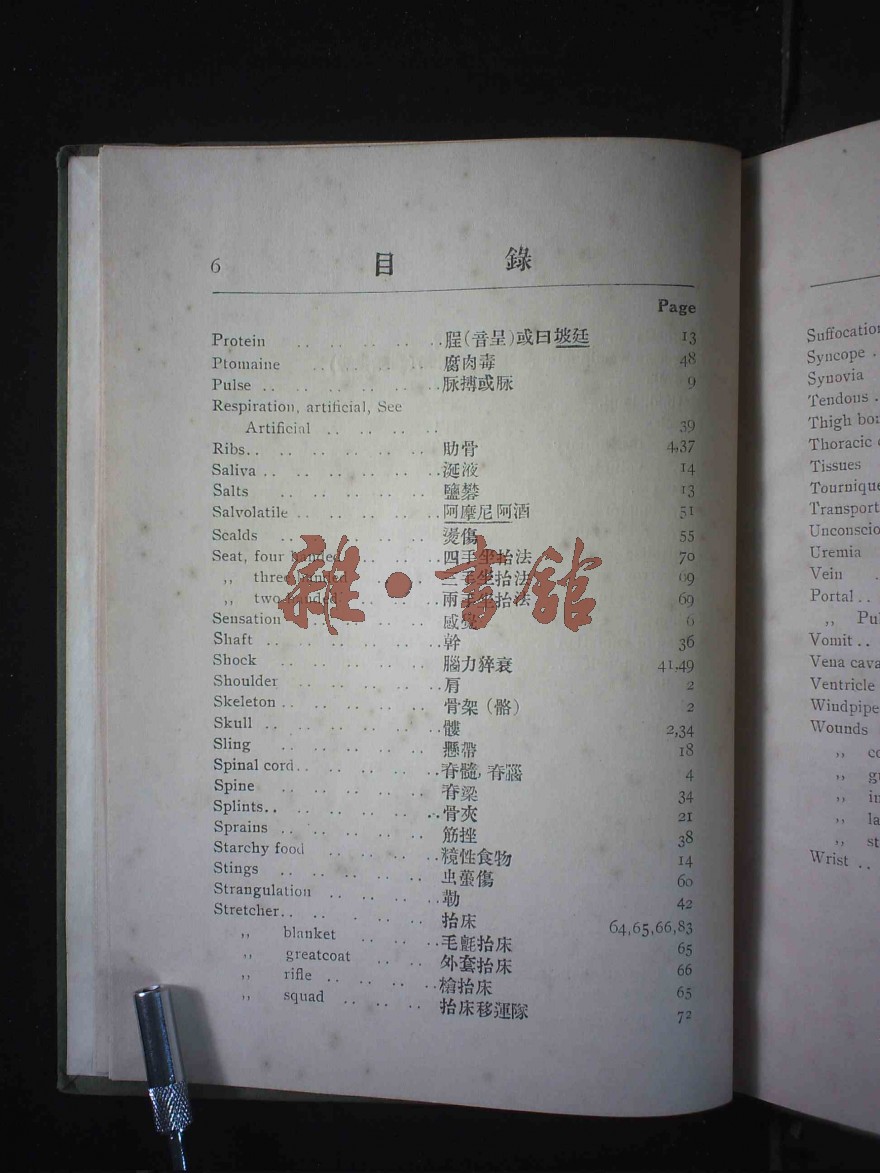 6 目 錄
Page
Protein .. .. .. .. .. ..脭(音呈)或曰坡廷 13
Ptomaine .. .. .. .. 腐肉毒 48
Pulse .. .. .. .. .. ..脉搏或脉 9
Respiration, artificial, See
Artificial .. .. .. .. 39
Ribs.. .. .. .. .. .. 肋骨 4,37
Saliva .. .. .. .. .. ..涎液 14
Salts .. .. .. .. .. 鹽礬 13
Salvolatile .. .. .. .. ..阿摩尼阿酒 51
Scalds .. .. .. .. .. 燙傷 55
Seat, four handed .. .. .. 四手坐抬法 70
,, three handed .. .. 三手坐抬法 69
,, two handed .. .. 兩手坐抬法 69
Sensation .. .. .. .. 感覺 6
Shaft .. .. .. .. .. ..幹 36
Shock .. .. .. .. .. 腦力猝衰 41,49
Shoulder .. .. .. .. ..肩 2
Skeleton .. .. .. .. .. 骨架(骼) 2
Skull .. .. .. .. .. ..髏 2,34
Sling .. .. .. .. .. 懸帶 18
Spinal cord.. .. .. .. ..脊髓, 脊腦 4
Spine .. .. .. .. .. 脊梁 34
Splints.. .. .. .. .. ..骨夾 21
Sprains .. .. .. .. .. 筋挫 38
Starchy food .. .. .. ..糨性食物 14
Stings .. .. .. .. .. 虫螫傷 60
Strangulation .. .. .. ..勒 42
Stretcher.. .. .. .. .. 抬床 64,65,66,83
,, blanket .. .. ..毛氈抬床 65
,, greatcoat .. .. 外套抬床 66
,, rifle .. .. .. ..槍抬床 65
,, squad .. .. .. 抬床移運隊 72
雜·書館
Suffocation
Syncope .
Synovia
Tendons .
Thigh bon
Thoracic
Tissues
Tournique
Transport
Unconscio
Uremia
Vein ..
Portal ..
,, Pu
Vomit ..
Vena cava
Ventricle
Windpipe
Wounds
,, co
,, g
,, in
,, la
,, st
Wrist ..